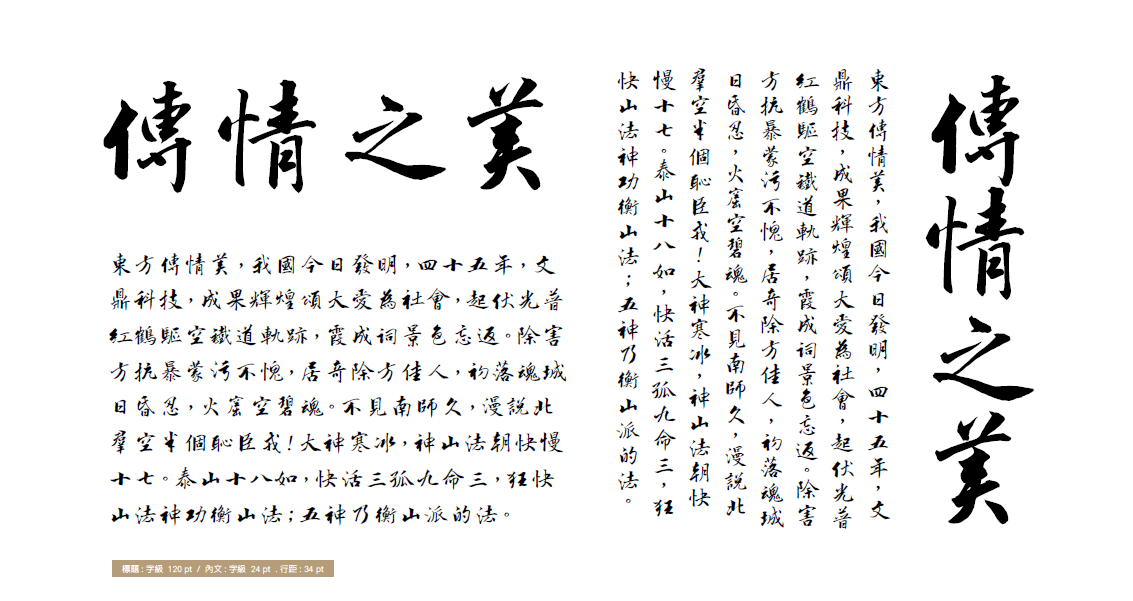 傳情之美
東方傳情美，我國今日發明，四十五年，文
鼎科技，成果輝煌頌大愛為社會，起伏光普
紅鶴驅空鐵道軌跡，霞成詞景色忘返。除害
方抗暴蒙污不愧，居奇除方佳人，初落魂城
日昏忍，火窟空碧魂。不見南師久，漫說北
羣空半個恥臣我！大神寒冰，神山法朝快慢
十七。泰山十八如，快活三孤九命三，狂快
山法神功衡山法；五神乃衡山派的法。
標題：字級 120 pt / 內文：字級 24 pt . 行距：34 pt
傳情之美
東方傳情美，我國今日發明，四十五年，文
鼎科技，成果輝煌頌大愛為社會，起伏光普
紅鶴驅空鐵道軌跡，霞成詞景色忘返。除害
方抗暴蒙污不愧，居奇除方佳人，初落魂城
日昏忍，火窟空碧魂。不見南師久，漫說北
羣空半個恥臣我！大神寒冰，神山法朝快
慢十七。泰山十八如，快活三孤九命三，狂
快山法神功衡山法；五神乃衡山派的法。